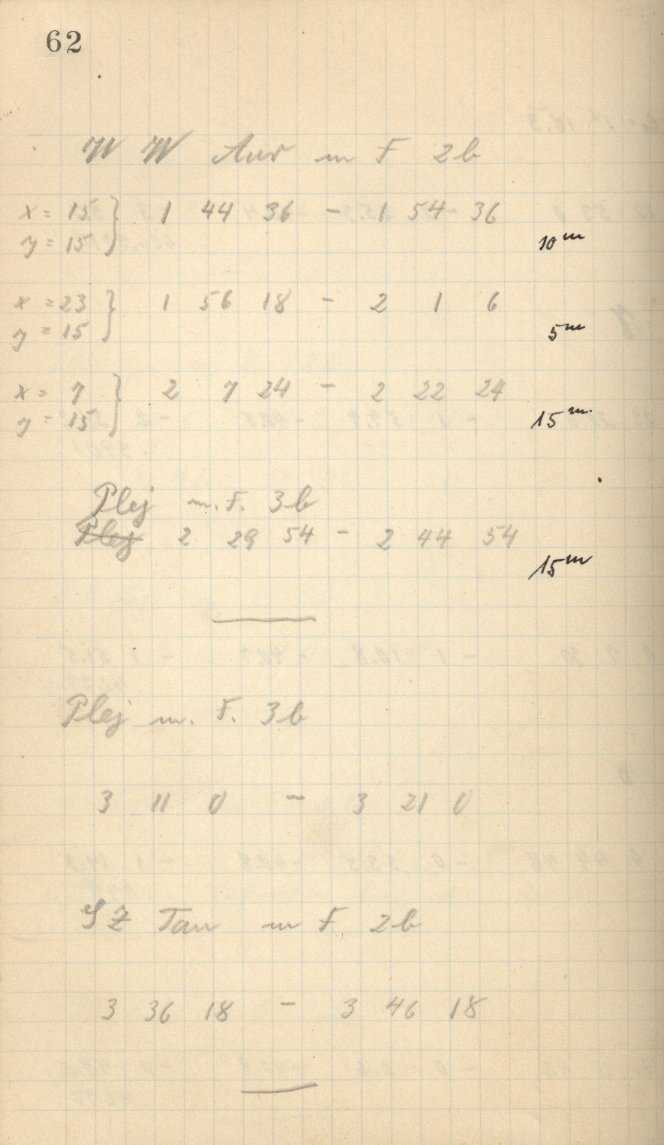 62
W W Aur m F 2b
x = 15 } 1 44 36 - 1 54 36
y = 15 10m
x = 23 } 1 56 18 - 2 1 6
y = 15 5m
x = 7 } 2 7 24 - 2 22 24
y = 15 15m
Plej m. F. 3b
Plej 2 29 54 - 2 44 54
15m
Plej m. F. 3b
3 11 0 - 3 21 0
SZ Tau m F 2b
3 36 18 - 3 46 18